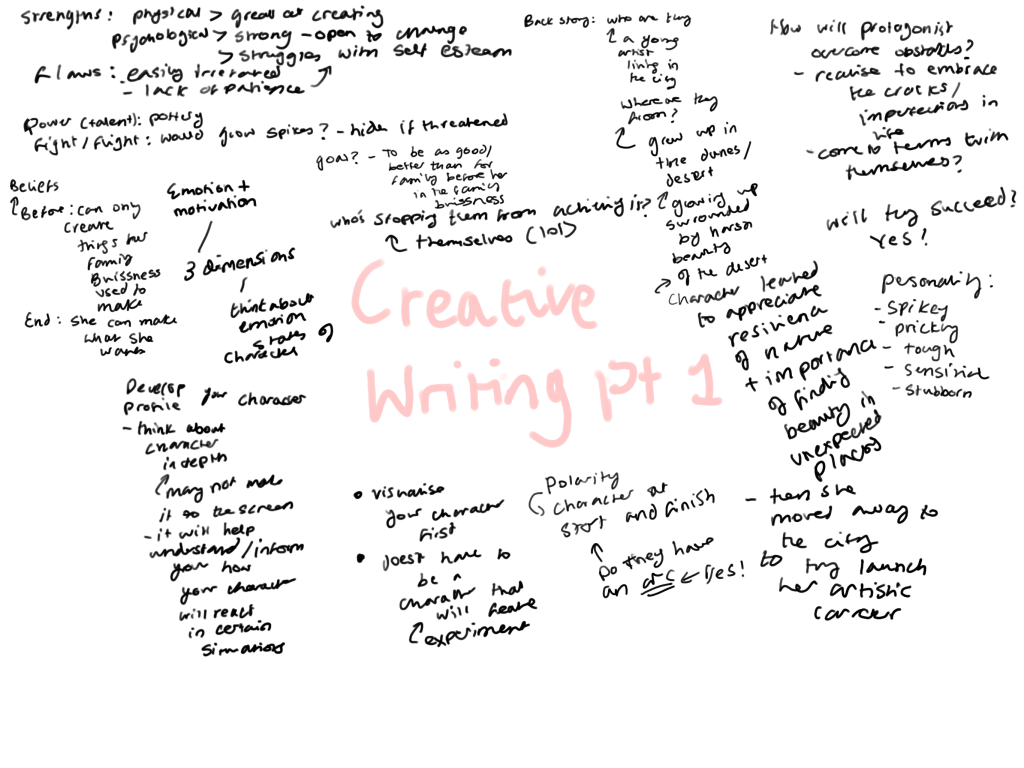 Strengths: physical > great at creating
psychological > strong - open to change
> struggles with self esteem
Flaws: easily irretated
- lack of patience
Power (talent): pottery
Fight/flight: would grow spikes? - hides if threatened
goal? - To be as good/
better than her
family before her
in the family
buissness
who's stopping them from achiving it?
themselves (lol)
Beliefs
Before: can only
create
things her
family
Buissness
used to
make
End: She can make
what she
wants
Emotion +
motivation
3 dimensions
think about
emotion
states of
character
Develop your character
profile
- think about
character
in depth
may not make
it to the screen
- it will help
understand/inform
you how
your character
will react
in certain
situations
Creative
Writing pt 1
• visualise
your character
first
• Doesn't have to
be a
character that
will feature
experiment
Polarity
character at
start and finish
Do they have
an arc ← Yes!
Back story: who are they
a young
artist
living in
the city
Where are they
from?
grew up in
the dunes/
desert
growing up
surrounded
by harsh
beauty
of the desert
Character learned
to appreciate
resilience
of nature
+ importance
of finding
beauty in
unexpected
places
- then she
moved away to
the city
to try launch
her artistic
career
How will protagonist
overcome obstacles?
- realise to embrace
the cracks/
imperfections in
life
- come to terms with
themselves?
Will they succeed?
Yes!
Personality:
- Spikey
- prickly
- tough
- sensitive
- stubborn